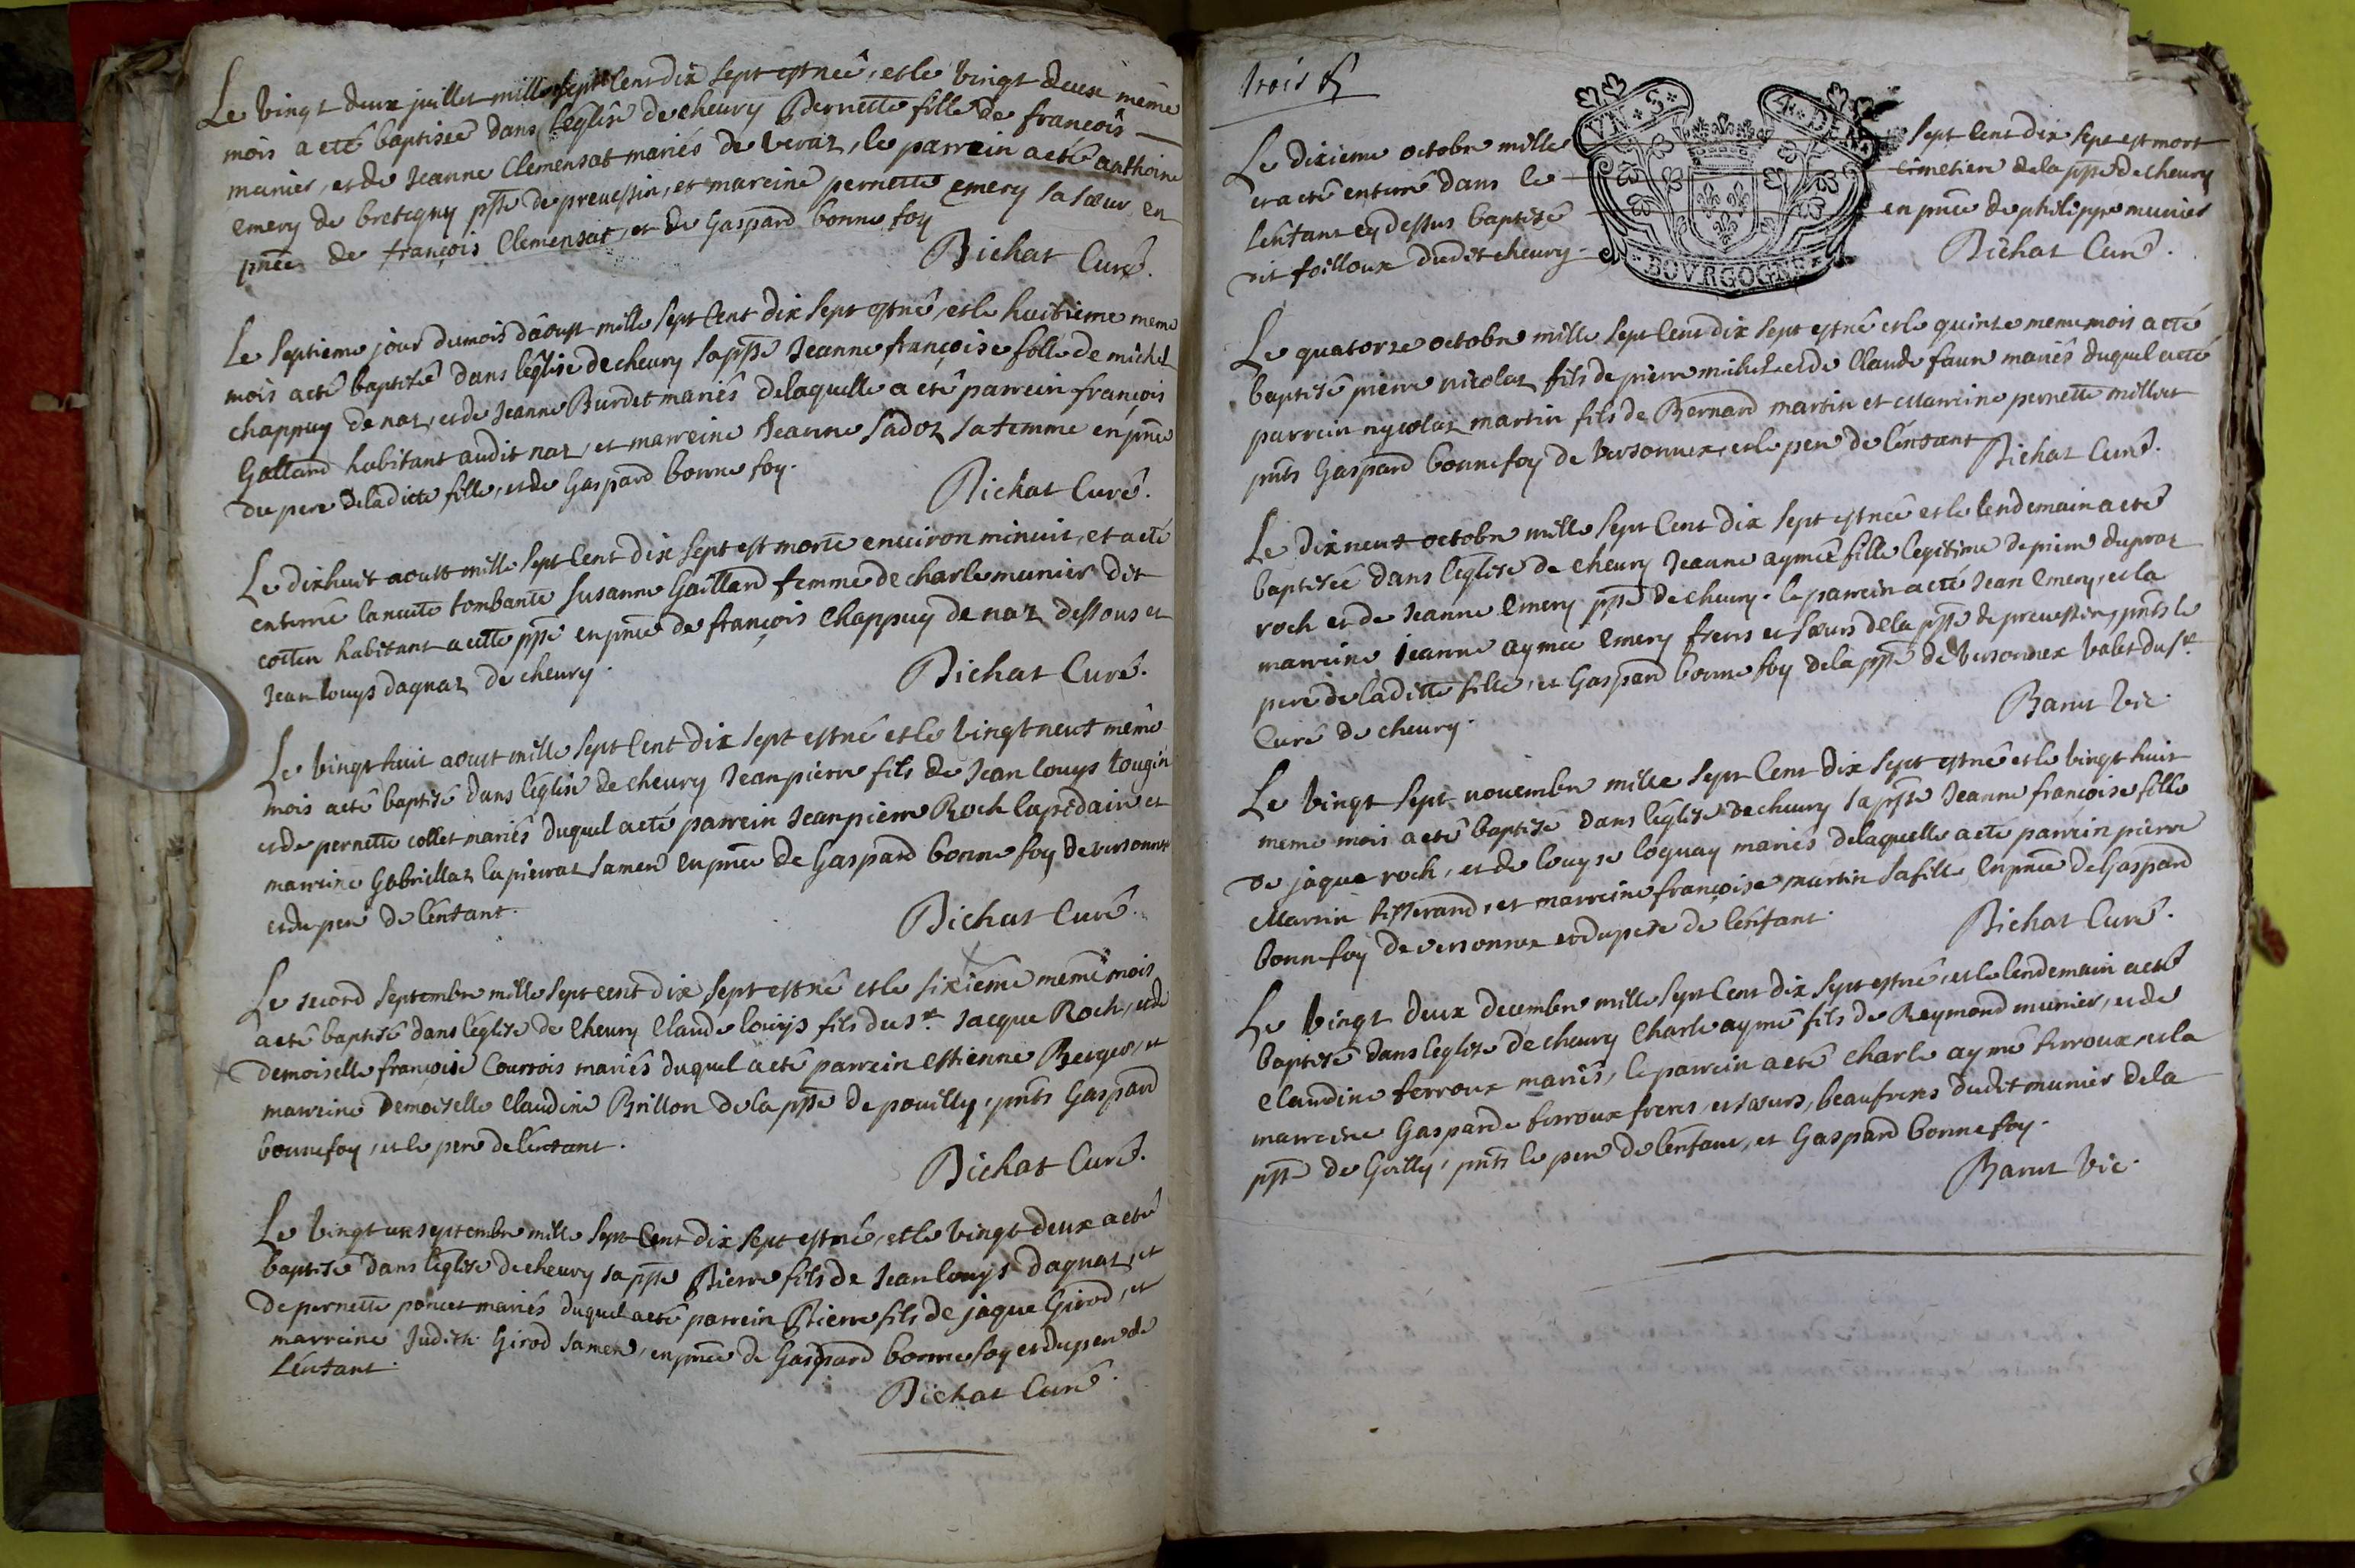 Le vingt deux juillet mille sept Cent dix sept est neé, et le vingt deux même
mois a eté baptiseé dans l'eglise de cheury Pernette fille de françois
munier, et de Jeanne Clemensat mariés de veraz, le parrein a eté anthoine
emery de bretigny ppsse de preuessin, et mareine pernette emery sa sœur en
pnce de françois Clemensat, et de Gaspard bonne foy
Bichat Curé.
Le septieme jour du mois d'aoust mille sept Cent dix sept est né, et le huitieme meme
mois a eté baptisé dans l'eglise de cheury sa ppsse Jeanne françoise fille de michel
chappuy de naz, et de Jeanne Burdet mariés de laquelle a eté parrein françois
Gallard habitant audit naz, et marreine Jeanne Sadoz sa femme en pnce
du pere de la dicte fille, et de Gaspard bonne foy.
Bichat Curé.
Le dixhuit aoust mille sept Cent dix sept est morte enuiron minuit, et a eté
enterré la nuite tombante Susanne Gaillard femme de charle munier dit
cotten habitant a cette ppsse en pnce de françois Chappuy de naz dessous et
Jean louys dagnaz de cheury.
Bichat Curé.
Le vingt huit aoust mille sept Cent dix sept est né et le vingt neuf même
mois a eté baptisé dans l'eglise de cheury Jean pierre fils de Jean louys tougin
et de pernette collet mariés duquel a eté parrein Jean pierre Roch lapidaire et
marreine Gabriellaz la pierraz sa mere en pnce de Gaspard bonne foy de versonnex
et du pere de l'enfant.
Bichat Curé.
Le second septembre mille sept cent dix sept est né et le sixieme même mois
a eté baptisé dans l'eglise de Cheury Claude louys fils du sr Jacque Roch, et de
Demoiselle françoise Courtois mariés duquel a eté parrein estienne Berger, et
marreine Demoiselle Claudine Brillon de la ppsse de pouilly, pnts Gaspard
bonnefoy, et le pere de l'enfant.
Bichat Curé.
Le vingt un septembre mille sept Cent dix sept est né, et le vingt deux a eté
baptisé dans l'eglise de cheury sa ppsse Pierre fils de Jean louys dagnaz, et
de pernette poncet mariés duquel a eté parrein Pierre fils de jaque Girod, et
marreine Judith Girod sa mere, en pnce de Gaspard bonne foy et du pere de
L'enfant.
Bichat Curé.
trois
Le dixieme octobre mille sept Cent dix sept est mort
et a eté enterré dans le cimetiere de la ppsse de cheury
L'enfant cy dessus baptisé en pnce de philippe munier
dit foilloux dudit cheury.
Bichat Curé.
VN.S. 4.DEN
BOVRGOGNE
Le quatorze octobre mille sept Cent dix sept est né et le quinze meme mois a eté
baptisé pierre nicolaz fils de pierre michel et de Claude faure mariés duquel a eté
parrein nycolaz martin fils de Bernard martin et marreine pernette milliet
pnts Gaspard bonnefoy de versonnex, et le pere de l'enfant
Bichat Curé.
Le dixneuf octobre mille sept Cent dix sept est neé et le lendemain a eté
baptiseé dans l'eglise de cheury Jeanne aymeé fille legitime de pierre dupraz
roch et de Jeanne Emery ppsse de cheury. le parrein a eté Jean Emery, et la
marreine Jeanne aymeé Emery freres et sœurs de la ppsse de preuessin, pnts le
pere de la ditte fille, et Gaspard bonne foy de la ppsse de versonnex valet du sr
Curé de cheury.
Barut vic
Le vingt sept nouembre mille sept Cent dix sept est né et le vingt huit
meme mois a eté baptisé dans l'eglise de cheury sa ppsse Jeanne françoise fille
de jaque roch, et de louyse loquay mariés de laquelle a eté parrein pierre
Martin tisserand, et marreine françoise martin sa fille en pnce de Gaspard
bonnefoy de versonnex et du pere de l'enfant.
Bichat Curé.
Le vingt deux decembre mille sept Cent dix sept est né, et le lendemain a eté
baptisé dans l'eglise de cheury Charle aymé fils de Reymond munier, et de
Claudine ferroux mariés, le parrein a eté Charle aymé ferroux, et la
marreine Gasparde ferroux freres, et sœurs, beaufreres dudit munier de la
ppsse de Grilly, pnts le pere de l'enfant, et Gaspard bonnefoy.
Barut vic.